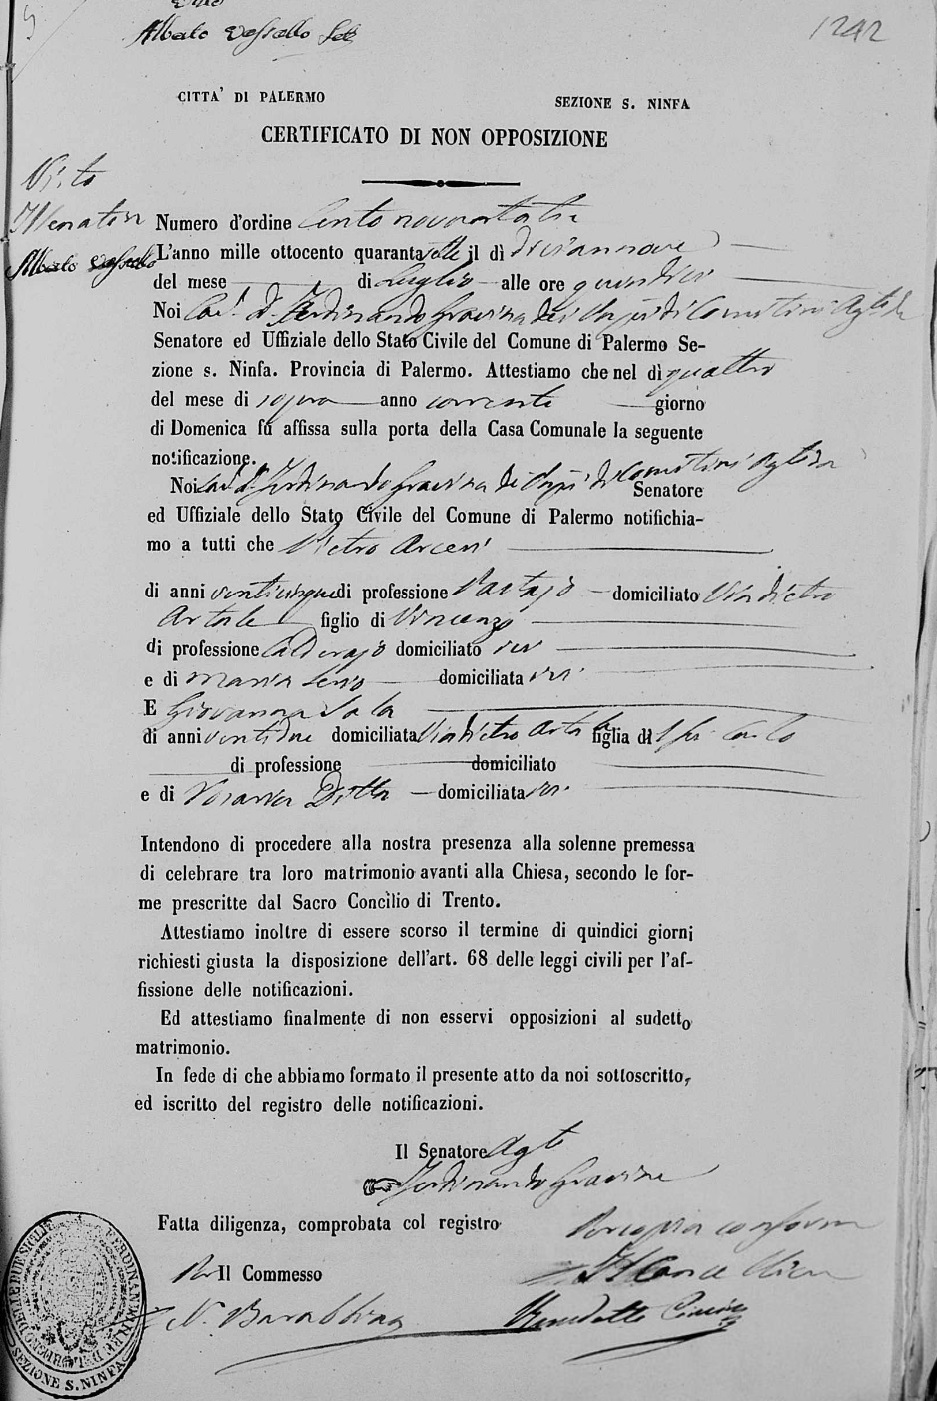 Alberto Vassallo
1242
CITTA' DI PALERMO
SEZIONE S. NINFA
CERTIFICATO DI NON OPPOSIZIONE
Visto
Il Senatore
Alberto Vassallo
Numero d'ordine Cento novantatre
L'anno mille ottocento quarantasette il dì diciannove
del mese di Luglio alle ore quindici
Noi Cav.r D. Ferdinando Gravina dei Prpi di Comitini Agte da
Senatore ed Uffiziale dello Stato Civile del Comune di Palermo Se-
zione s. Ninfa. Provincia di Palermo. Attestiamo che nel dì quattro
del mese di sopra anno corrente giorno
di Domenica fu affissa sulla porta della Casa Comunale la seguente
notificazione.
Noi Cav. D. Ferdinando Gravina dei Prpi di Comitini Agte da Senatore
ed Uffiziale dello Stato Civile del Comune di Palermo notifichia-
mo a tutti che Pietro Arceri
di anni venticinque di professione Pastajo domiciliato Via dietro
Artale figlio di Vincenzo
di professione Calderajo domiciliato ivi
e di Maria domiciliata ivi
E Giovanna Sala
di anni ventidue domiciliata Via dietro Artale figlia di
di professione domiciliato
e di Rosaria Ditta domiciliata ivi
Intendono di procedere alla nostra presenza alla solenne premessa
di celebrare tra loro matrimonio avanti alla Chiesa, secondo le for-
me prescritte dal Sacro Concilio di Trento.
Attestiamo inoltre di essere scorso il termine di quindici giorni
richiesti giusta la disposizione dell'art. 68 delle leggi civili per l'af-
fissione delle notificazioni.
Ed attestiamo finalmente di non esservi opposizioni al sudetto
matrimonio.
In fede di che abbiamo formato il presente atto da noi sottoscritto,
ed iscritto del registro delle notificazioni.
Il Senatore Agte
Ferdinando Gravina
Fatta diligenza, comprovata col registro
Per copia conforme
Per Il Commesso
Il Cancelliere
N. Barabbino
Benedetto
SEZIONE S. NINFA